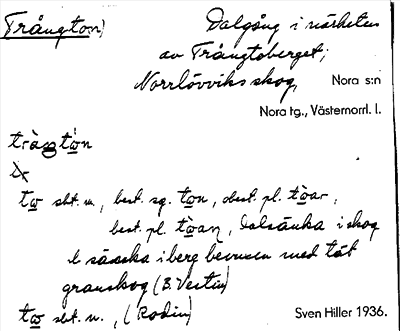 Trångton)
Dalgång i närheten
av Trångtoberget;
Norrlövviks skog, Nora s:n
Nora tg., Västernorrl. l.
tràŋtòn
to sbt. m., best. sg. ton, obest. pl. tòar,
best. pl. tòaŋ, dalsänka i skog
l. sänka i berg bevuxen med tät
granskog (B. Vestin)
to sbt. m., (Rodin)
Sven Hiller 1936.